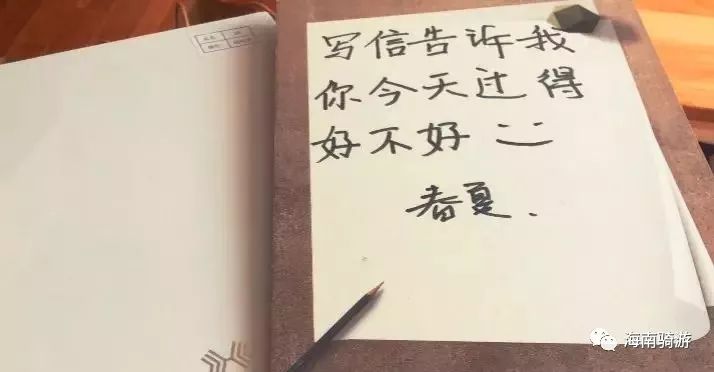 写信告诉我
你今天过得
好不好
春夏.
海南骑游